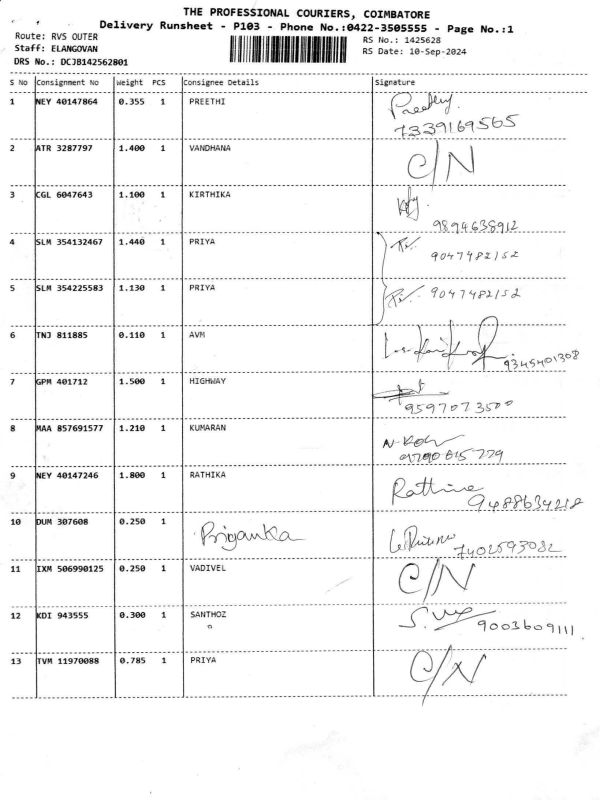 THE PROFESSIONAL COURIERS, COIMBATORE
Delivery Runsheet - P103 - Phone No.:0422-3505555 - Page No.:1
Route: RVS OUTER
RS No.: 1425628
Staff: ELANGOVAN
RS Date: 10-Sep-2024
DRS No.: DCJB142562801
S No Consignment No Weight PCS Consignee Details Signature
1 NEY 40147864 0.355 1 PREETHI Preethy.
7339169565
2 ATR 3287797 1.400 1 VANDHANA C/N
3 CGL 6047643 1.100 1 KIRTHIKA
9894638912
4 SLM 354132467 1.440 1 PRIYA
9047482152
5 SLM 354225583 1.130 1 PRIYA 9047482152
6 TNJ 811885 0.110 1 AVM
9345401308
7 GPM 401712 1.500 1 HIGHWAY
9597073500
8 MAA 857691577 1.210 1 KUMARAN
9790615779
9 NEY 40147246 1.800 1 RATHIKA
9488634218
10 DUM 307608 0.250 1 Priyanka
7402593082
11 IXM 506990125 0.250 1 VADIVEL C/N
12 KDI 943555 0.300 1 SANTHOZ
9003609111
13 TVM 11970088 0.785 1 PRIYA C/N